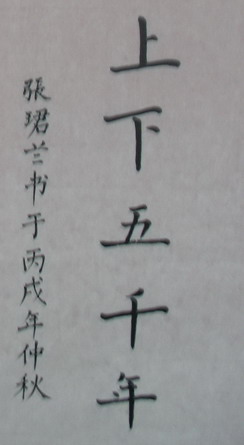 上下五千年
張珺兰书于丙戌年仲秋